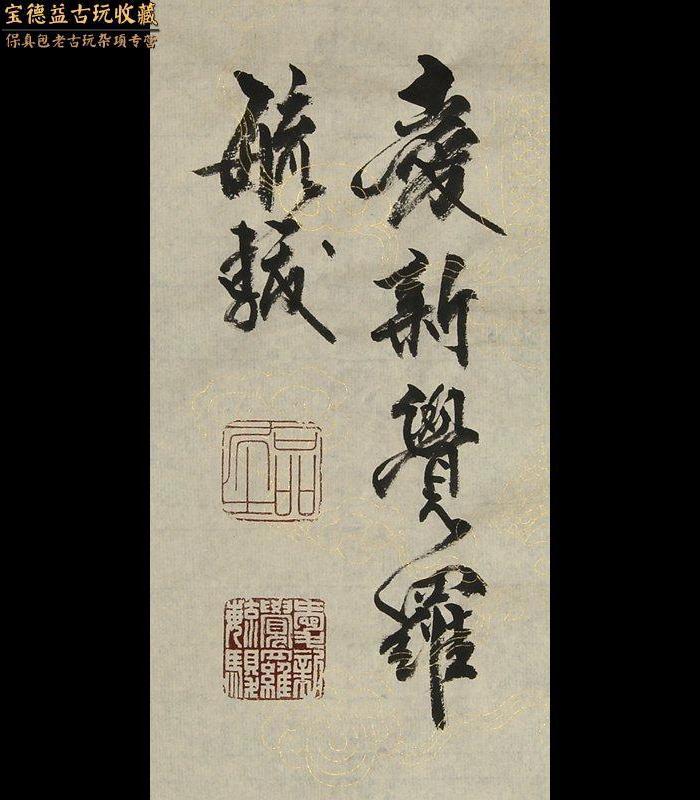 宝德益古玩收藏
保真包老古玩杂项专营
愛新覺羅
毓
愛新
覺羅
毓